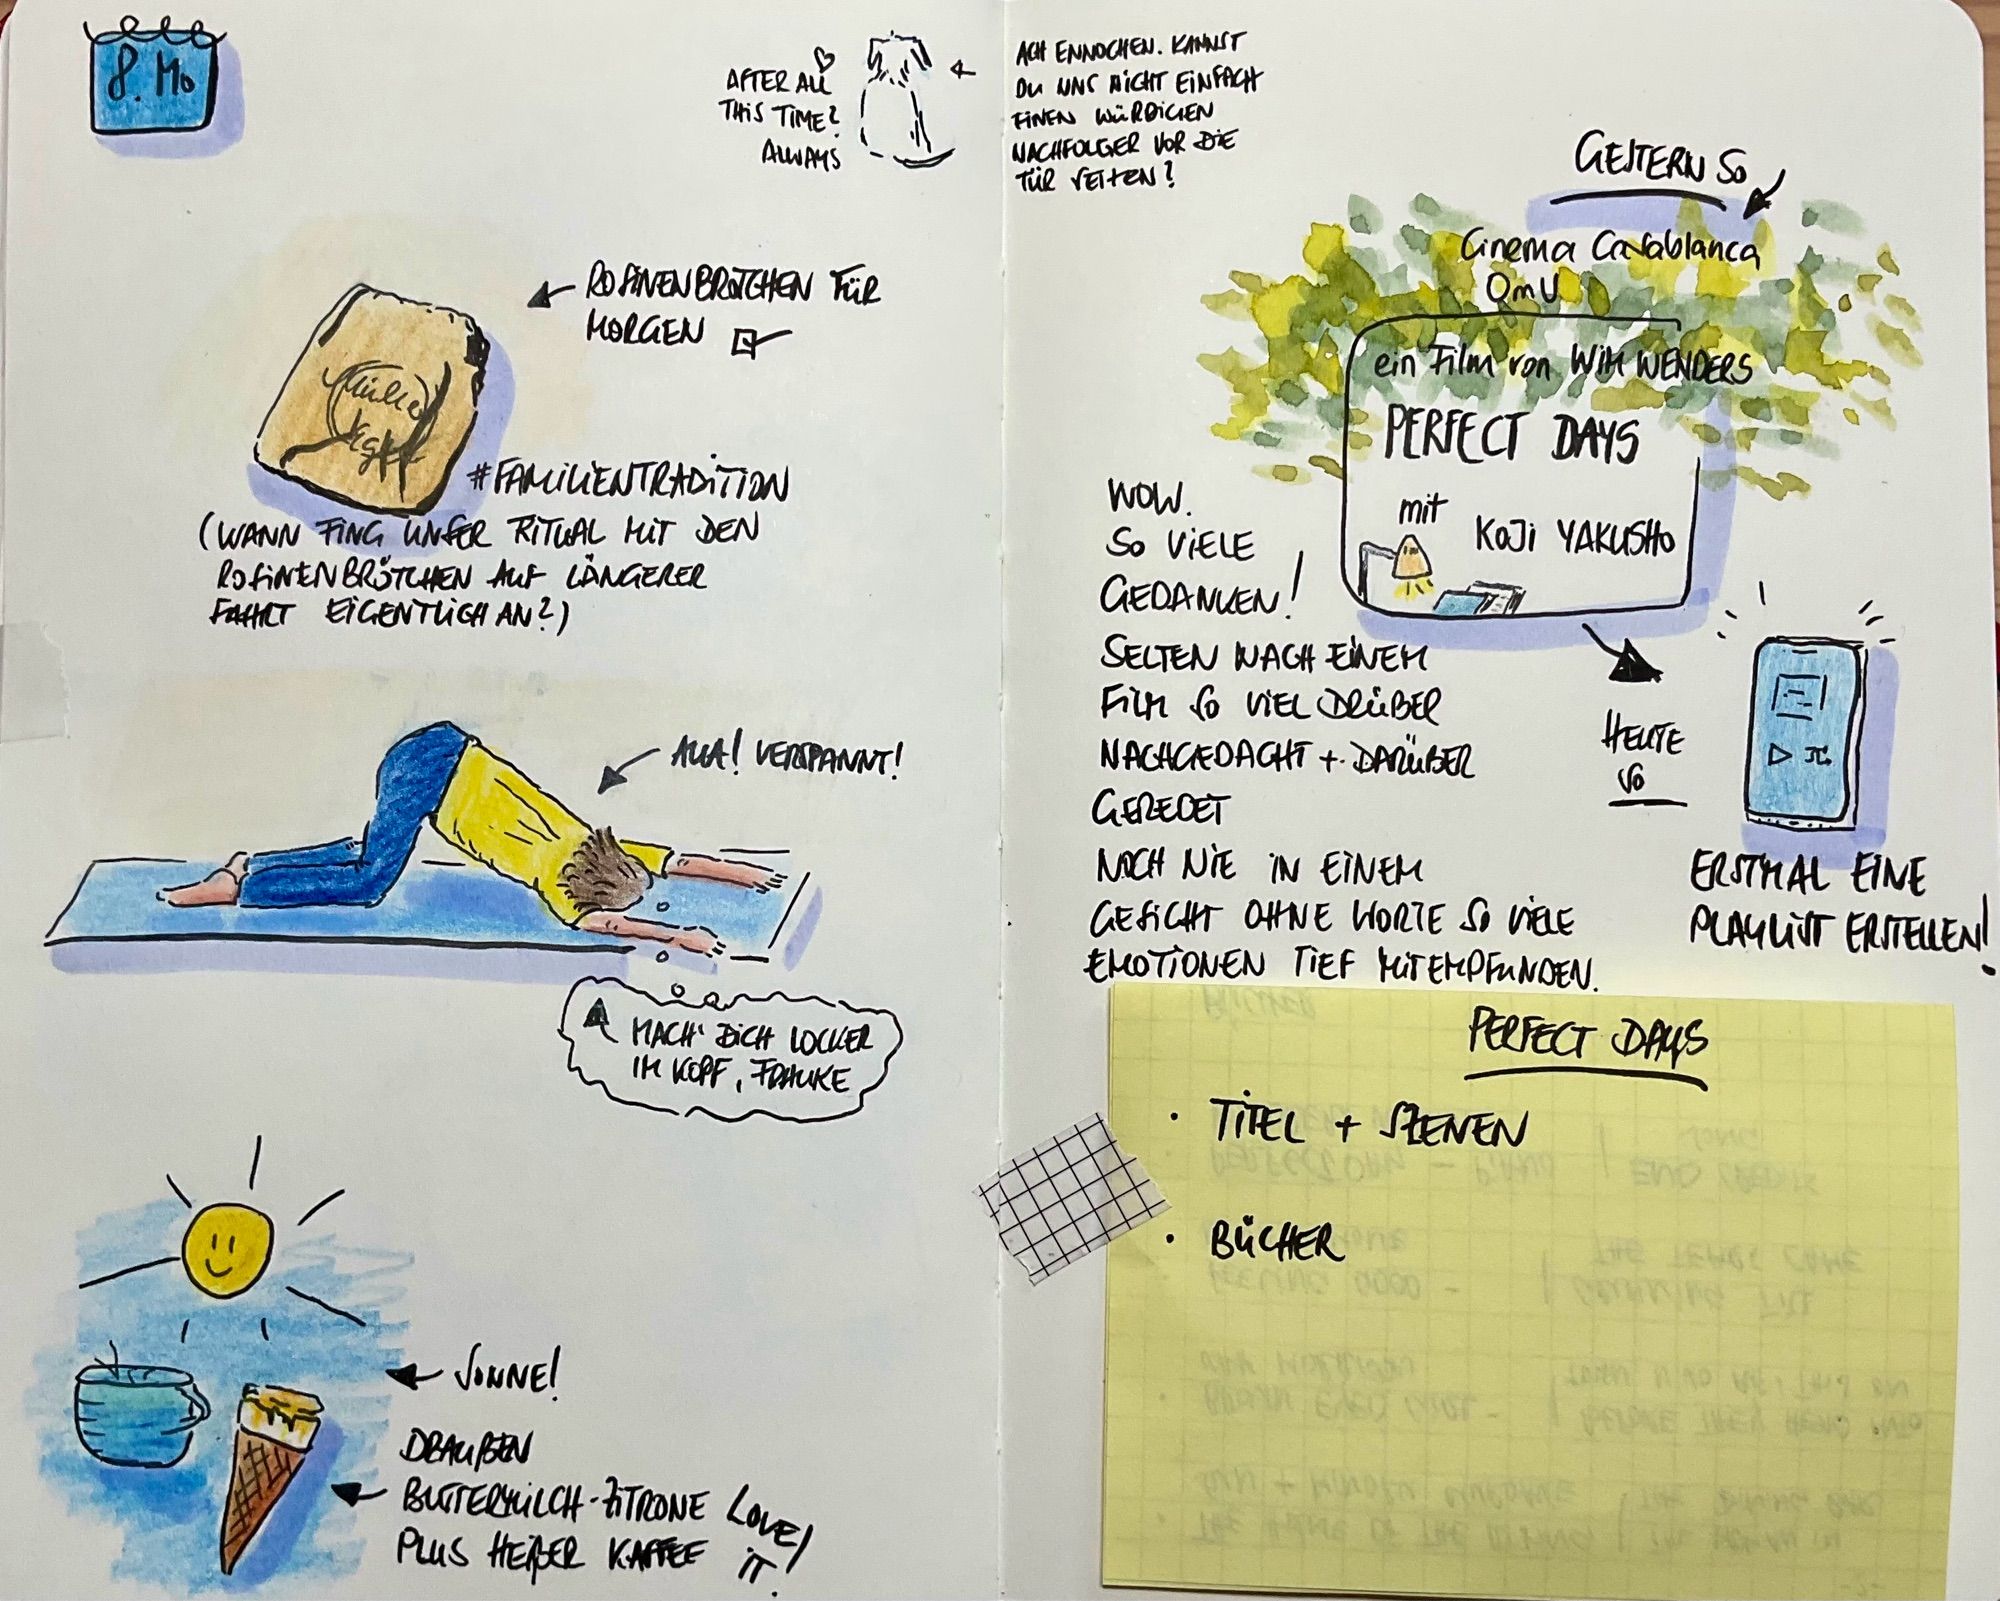 8. Mo
AFTER ALL
THIS TIME?
ALWAYS
ACH ENNOCHEN. KANNST
DU UNS NICHT EINFACH
EINEN WÜRDIGEN
NACHFOLGER VOR DIE
TÜR SETZEN?
ROSINENBRÖTCHEN FÜR
MORGEN
#FAMILIENTRADITION
(WANN FING UNSER RITUAL MIT DEN
ROSINENBRÖTCHEN AUF LÄNGERER
FAHRT EIGENTLICH AN?)
AUA! VERSPANNT!
MACH' DICH LOCKER
IM KOPF, FRAUKE
SONNE!
DRAUßEN
BUTTERMILCH-ZITRONE
PLUS HEIßER KAFFEE
LOVE
IT!
GESTERN SO
Cinema Casablanca
OmU
ein Film von WIM WENDERS
PERFECT DAYS
mit
KOJI YAKUSHO
WOW.
SO VIELE
GEDANKEN!
SELTEN NACH EINEM
FILM SO VIEL DRÜBER
NACHGEDACHT + DARÜBER
GEREDET
NOCH NIE IN EINEM
GESICHT OHNE WORTE SO VIELE
EMOTIONEN TIEF MITEMPFUNDEN.
HEUTE
SO
ERSTMAL EINE
PLAYLIST ERSTELLEN!
PERFECT DAYS
• TITEL + SZENEN
• BÜCHER